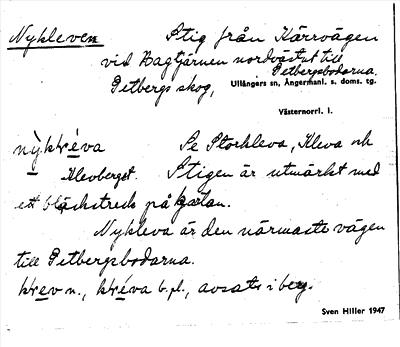 Nykleven Stig från Kärrvägen
vid Bagtjärnen nordvästut till
Getbergsbodarna.
Getbergs skog, Ullångers sn, Ångermanl. s. doms. tg.
Västernorrl. l.
Se Storkleva, Kleva och
Klevberget. Stigen är utmärkt med
ett bläckstreck på kartan.
Nykleva är den närmaste vägen
till Getbergsbodarna.
b. pl., avsats i berg.
Sven Hiller 1947